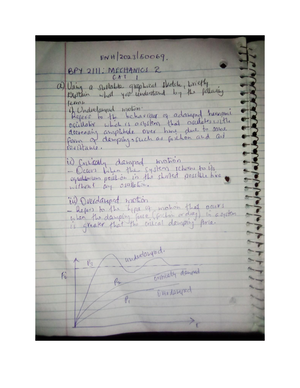 ENH/2023/60064,
BPY 2111: MECHANICS 2
CAT 1
a) Using a suitable graphical sketch, briefly
Explain what you understand by the following
terms
i) Underdamped motion
- Refers to the behaviour of a damped harmonic
oscillator which is a system that oscillates with
decreasing amplitude over time due to some
form of damping such as friction and air
resistance.
ii) Critically damped motion
- Occurs when the system returns to its
equilibrium position in the shortest possible time
without any oscillation.
iii) Overdamped motion
- Refers to the type of motion that occurs
when the damping force (friction or drag) in a system
is greater that the critical damping force.
Underdamped
Critically damped
Overdamped